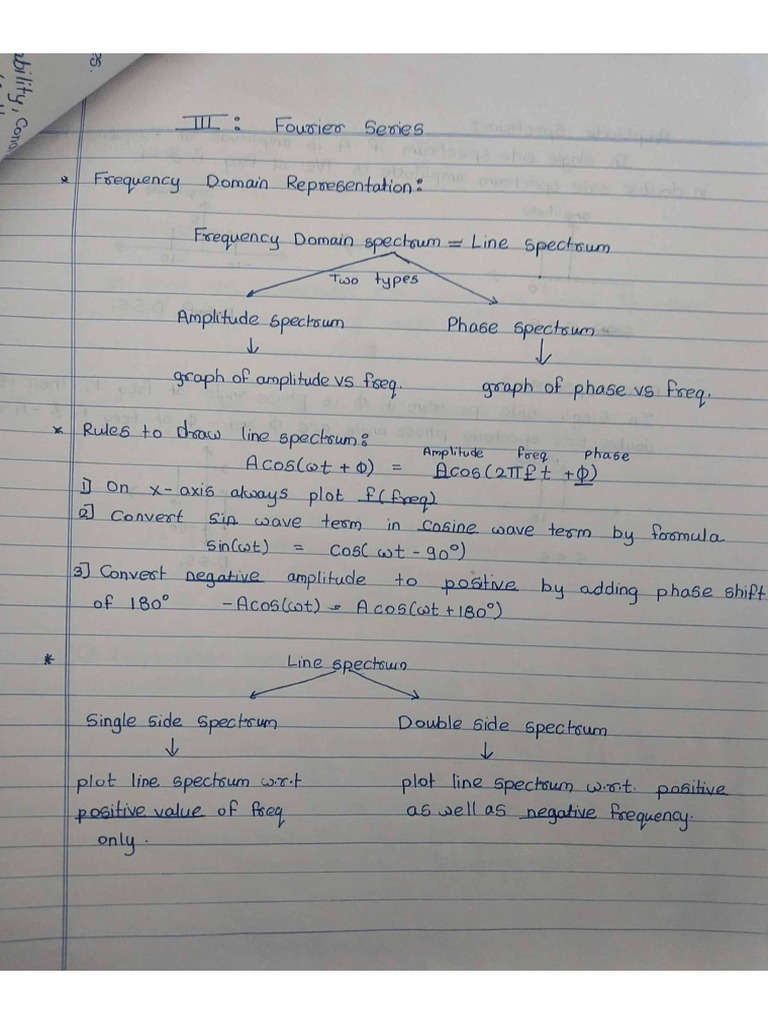 III: Fourier Series
* Frequency Domain Representation:
Frequency Domain spectrum = Line spectrum
Two types
Amplitude spectrum Phase spectrum
graph of amplitude vs freq. graph of phase vs freq.
* Rules to draw line spectrum:
Amplitude freq phase
Acos(ωt + Φ) = Acos(2πft + Φ)
1] On x-axis always plot f(freq)
2] Convert sin wave term in cosine wave term by formula
sin(ωt) = cos(ωt - 90°)
3] Convert negative amplitude to postive by adding phase shift
of 180° -Acos(ωt) = Acos(ωt + 180°)
* Line spectrum
Single side spectrum Double side spectrum
plot line spectrum w.r.t plot line spectrum w.r.t. positive
positive value of freq as well as negative frequency.
only.